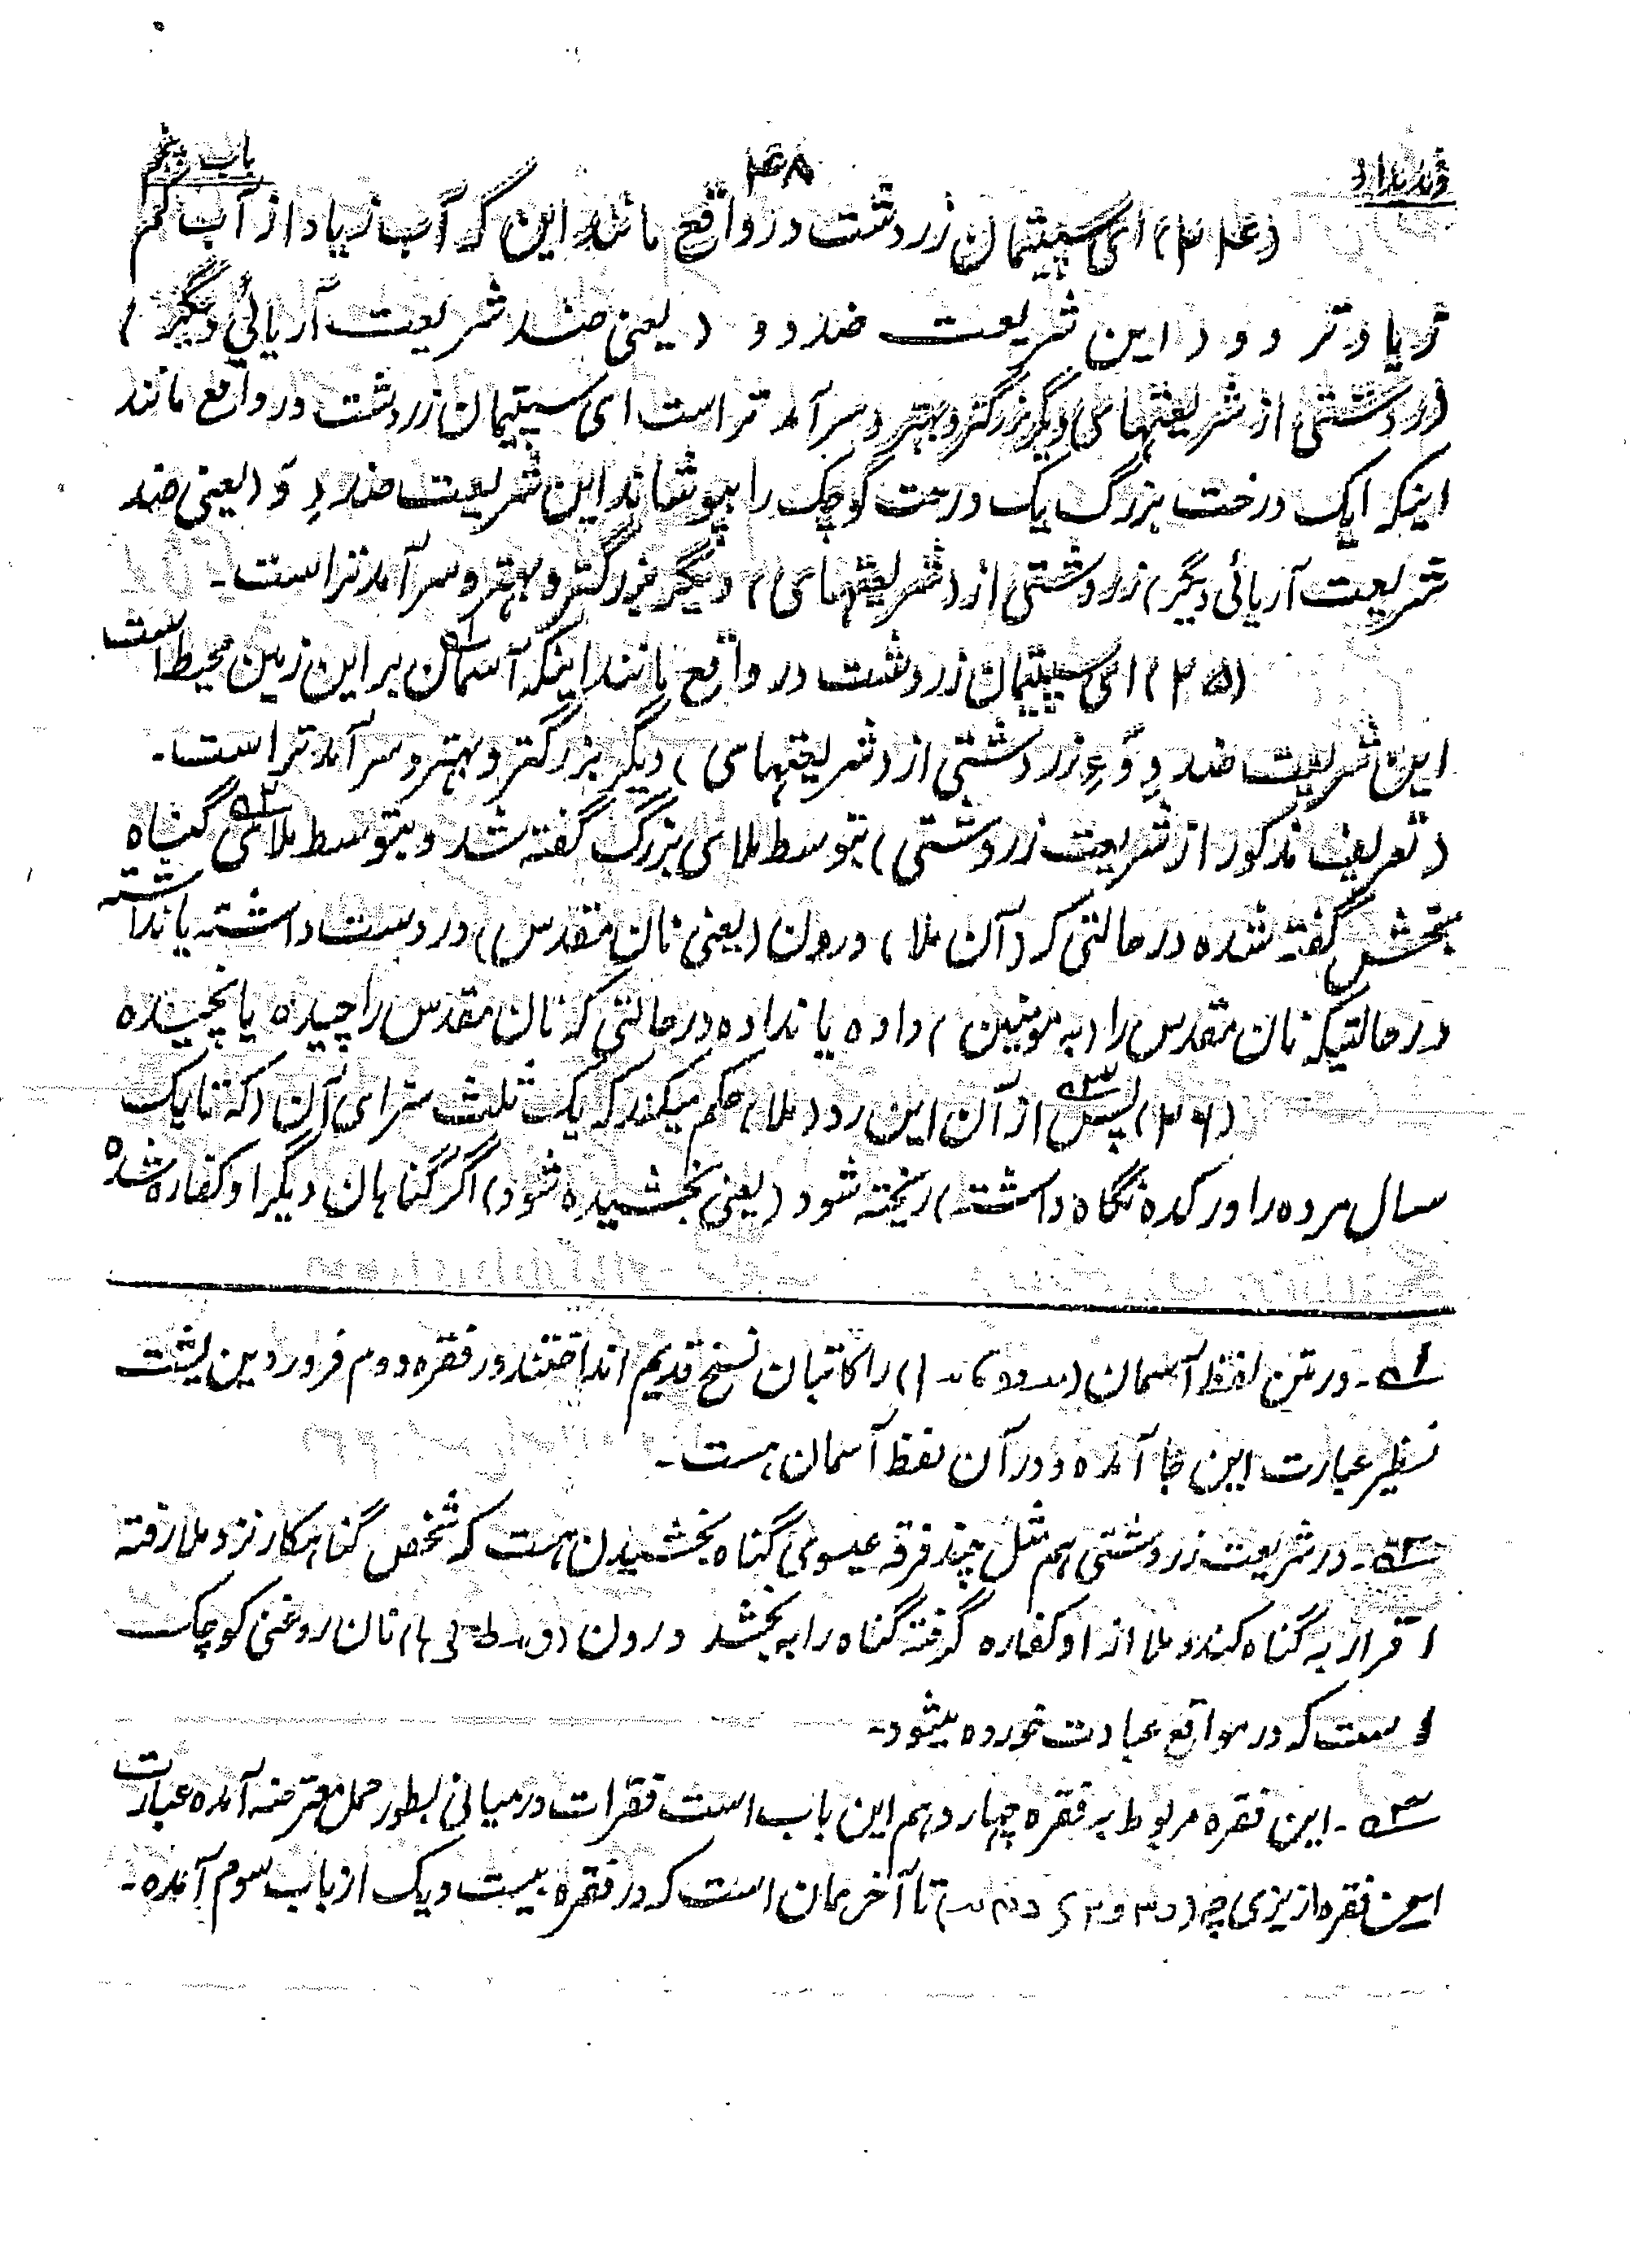 وندیداد
۴۸
باب پنجم
(۲۴) ای سپیتمان زردشت در واقع مانند این که آب زیاد از آب کم
زیادتر رود این شریعت ضددو (یعنی ضد شریعت آریائی دیگر)
زردشتی از شریعتهای دیگر بزرگتر و بهتر و سرآمد تر است ای سپیتمان زردشت در واقع مانند
اینکه یک درخت بزرگ یک درخت کوچک را بپوشاند این شریعت ضددِوَ (یعنی ضد
شریعت آریائی دیگر) زردشتی از (شریعتهای) دیگر بزرگتر و بهتر و سرآمدتر است۔
(۲۵) ای سپیتمان زردشت در واقع مانند اینکه آسمان۵۱ بر این زمین محیط است
این شریعت ضددِوَءِ زردشتی از (شریعتهای) دیگر بزرگتر و بهتر و سرآمدتر است۔
(تعریف مذکور از شریعت زردشتی) بتوسط ملای بزرگ گفته شد و بتوسط ملای۵۲ گناه
بخش گفته شده در حالتی که (آن ملا) درون (یعنی نان مقدس) در دست داشته یا نداشته
در حالتیکه نان مقدس را (به مومنین) داده یا نداده در حالتی که نان مقدس را چیده یا نچیده
(۲۶) پس۵۳ از آن این رد (ملا) حکم میکند که یک ثلث سزای آن (که تا یک
سال مرده را در کده نگاه داشته) ریخته شود (یعنی بخشیده شود) اگر گناهان دیگر او کفاره شده
۵۱۔ در متن لفظ آسمان را کاتبان نسخ قدیم انداختند در فقره دوم فروردین یشت
نظیر عبارت این جا آمده و در آن لفظ آسمان هست۔
۵۲۔ در شریعت زردشتی هم مثل چند فرقه عیسوی گناه بخشیدن هست که شخص گناهکار نزد ملا رفته
اقرار به گناه کند و ملا از او کفاره گرفته گناه را به بخشد درون نان روغنی کوچک
است که در مواقع عبادت خورده میشود۔
۵۳۔ این فقره مربوط به فقره چهاردهم این باب است فقرات درمیانی بطور جمل معترضه آمده عبارت
این فقره از یزی چه تا آخر همان است که در فقره بیست و یک از باب سوم آمده۔